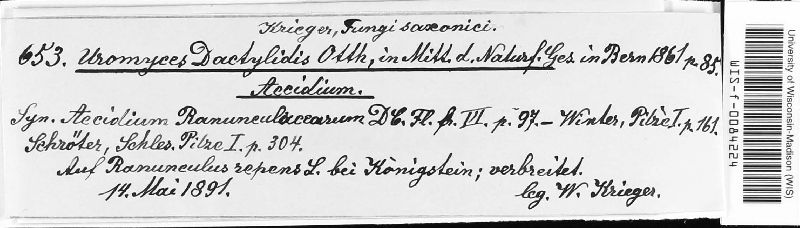 Krieger, Fungi saxonici.
653. Uromyces Dactylidis Otth, in Mitt. d. Naturf. Ges. in Bern 1861 p. 85.
Aecidium.
Syn. Aecidium Ranunculacearum DC. Fl. fr. VI. p. 97. – Winter, Pilze I. p. 161.
Schröter, Schles. Pilze I. p. 304.
Auf Ranunculus repens L. bei Königstein; verbreitet.
14. Mai 1891.
leg. W. Krieger.
WIS-f-0084224
University of Wisconsin-Madison (WIS)